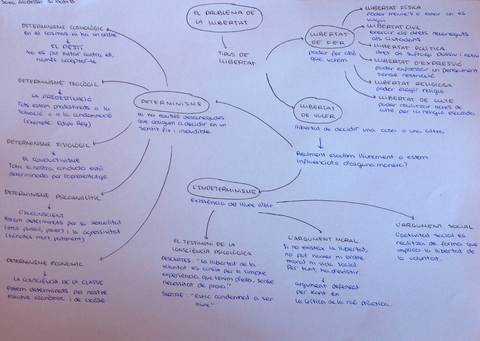 EL PROBLEMA DE LA
LLIBERTAT
TIPUS DE
LLIBERTAT
LLIBERTAT
DE FER
poder fer allò
que volem
LLIBERTAT FÍSICA
poder moure's o anar on es
vulgui
LLIBERTAT CIVIL
exercir els drets reconeguts
als ciutadans
LLIBERTAT POLÍTICA
dret de sufragi passiu i actiu
LLIBERTAT D'EXPRESSIÓ
poder expressar un pensament
sense restricció
LLIBERTAT RELIGIOSA
poder escollir religió
LLIBERTAT DE CULTE
poder realitzar actes de
culte per la religió escollida
LLIBERTAT
DE VOLER
llibertat de decidir una cosa o una altra
Realment escollim lliurement o estem
influenciats d'alguna manera?
DETERMINISME
Hi ha causes desconegudes
que obliguen a decidir en un
sentit fix i ineludible.
DETERMINISME COSMOLÒGIC
En el cosmos hi ha un ordre
EL DESTÍ
No es pot evitar
només acceptar-lo
DETERMINISME TEOLÒGIC
LA PREDESTINACIÓ
Tots estem predestinats a la
salvació o a la condemnació
(exemple: Edip Rei)
DETERMINISME FISIOLÒGIC
EL CONDUCTIVISME
Tota la nostra conducta està
determinada per l'aprenentatge
DETERMINISME PSICOANALÍTIC
L'INCONSCIENT
Estem determinats per la sexualitat
i la agressivitat
DETERMINISME ECONÒMIC
LA CONSCIÈNCIA DE LA CLASSE
Estem determinats per nostre
econòmic i de classe
L'INDETERMINISME
Existència del lliure albir
EL TESTIMONI DE LA
CONSCIÈNCIA PSICOLÒGICA
DESCARTES: "La llibertat de la
voluntat es coneix per la simple
experiència que tenim d'ella, sense
necessitat de proves"
SARTRE: "Estic condemnat a ser
lliure"
L'ARGUMENT MORAL
Si no existeix la llibertat,
no pot haver-hi ordre
moral ni vida social.
Per tant, ha d'existir
argument defensat
per Kant en
la Crítica de la raó pràctica.
L'ARGUMENT SOCIAL
L'activitat social es
realitza de forma que
implica la llibertat de
la voluntat.